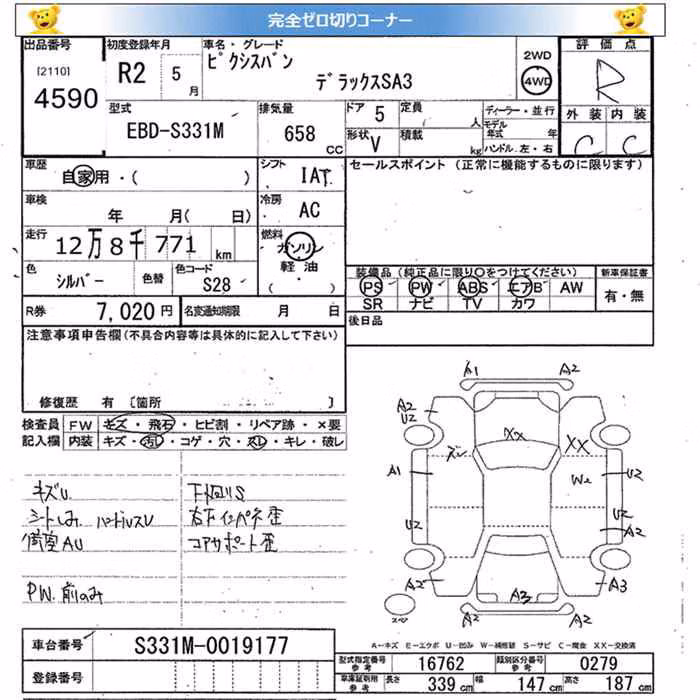 完全ゼロ切りコーナー
出品番号
[2110]
4590
初度登録年月
R2 5 月
車名・グレード
ピクシスバン
デラックスSA3
2WD
4WD
評価点
R
外装 内装
C C
型式
EBD-S331M
排気量
658 CC
ドア 5
形状 V
定員 人
積載 kg
ディーラー・並行
モデル年式 年
ハンドル 左・右
車歴
自家用・( )
シフト
IAT
セールスポイント (正常に機能するものに限ります)
車検
年 月( 日)
冷房
AC
走行
12万8千771 km
燃料
ガソリン
軽油
( ・ )
色
シルバー
色替
色コード
S28
装備品(純正品に限り○をつけてください)
PS PW ABS エアB AW
SR ナビ TV カワ
新車保証書
有・無
R券 7,020円
名変通知期限 月 日
後日品
注意事項申告欄(不具合内容等は具体的に記入して下さい)
修復歴 有〔箇所 〕
検査員 FW キズ・飛石・ヒビ割・リペア跡・×要
記入欄 内装 キズ・汚・コゲ・穴・スレ・キレ・破レ
キズU
シートしみ ハンドルスレ
荷室AU
PW.前のみ
下回りS
右下インパネ歪
コアサポート歪
A1
A2
A2
U2
XX
XX
A1
W2
U2
U2
U2
A2
A2
A3
A3
A2
A2
A-キズ E-エクボ U-凹み W-補修跡 S-サビ C-腐食 XX-交換済
車台番号 S331M-0019177
登録番号
型式指定番号 参考 16762
類別区分番号 参考 0279
車庫証明用 参考 長さ 339cm 幅 147cm 高さ 187cm